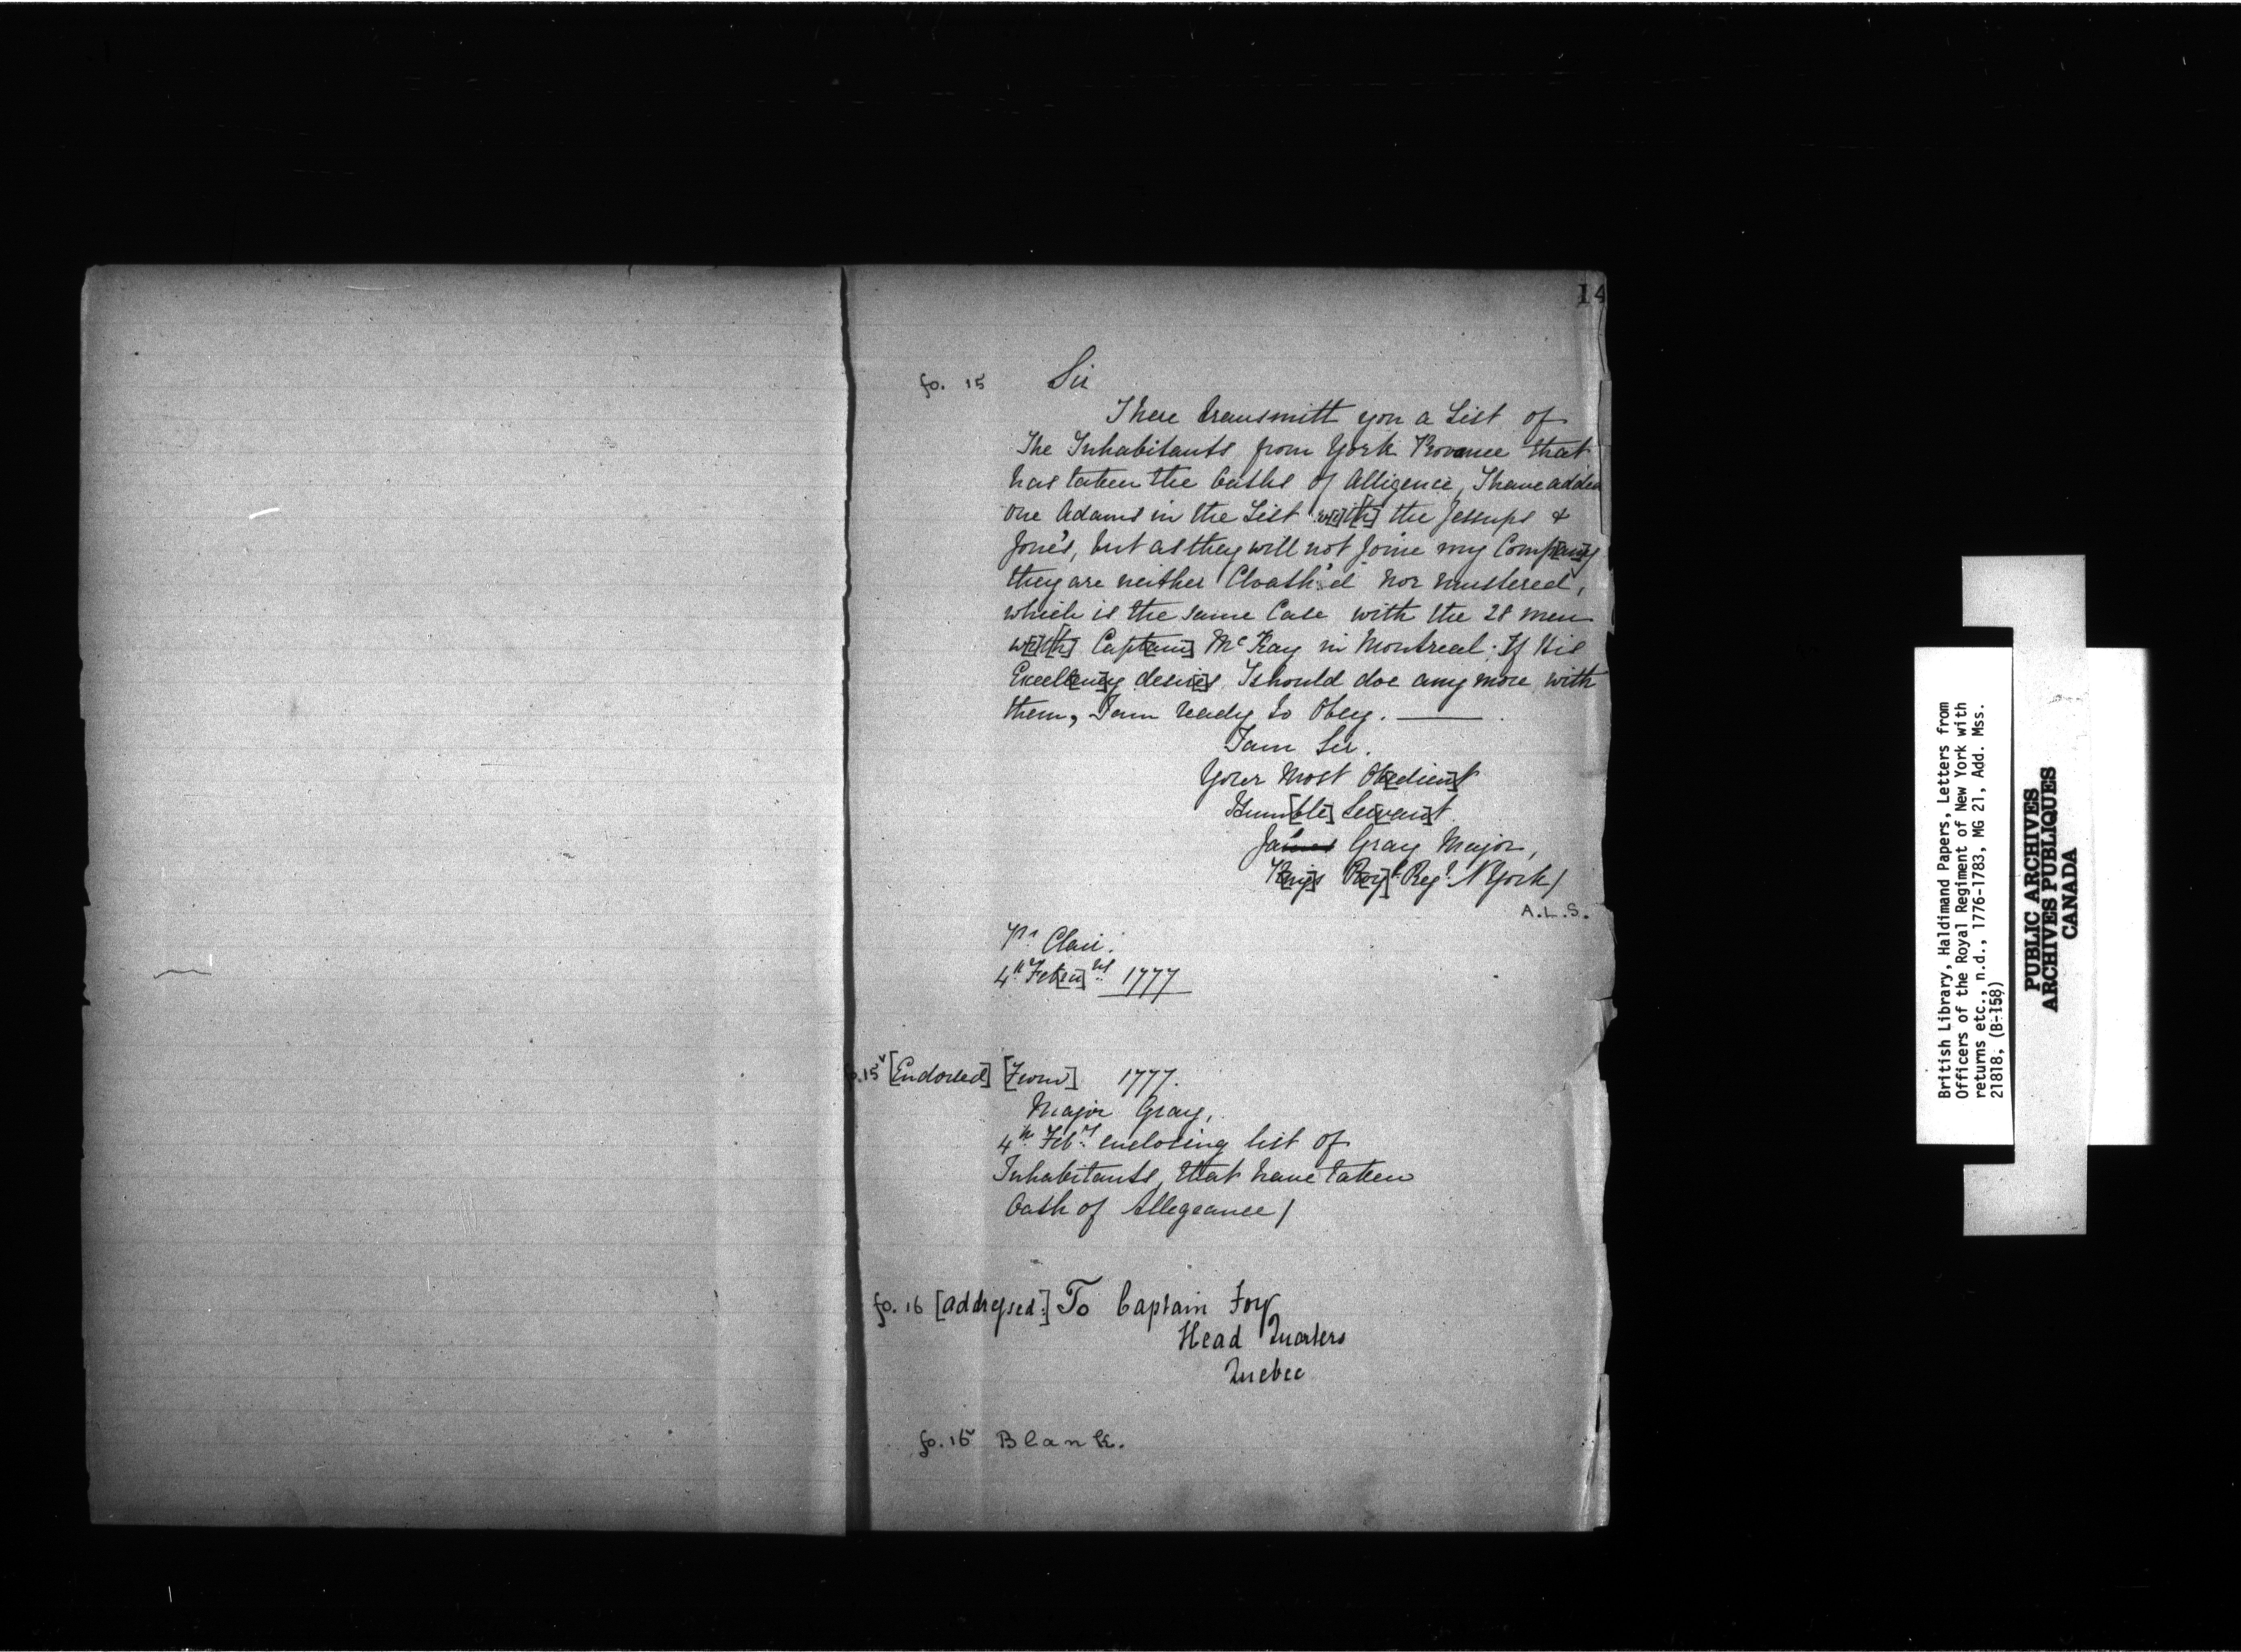 14
fo. 15 Sir
I here transmitt you a List of
The Inhabitants from York Provance that
has taken the Oaths of Alligence, I have added
one Adams in the List w[i]t[h] the Jessups &
Jone's, but as they will not Joine my Comp[an]y
they are neither Cloath'd nor mustered,
which is the same Case with the 28 men
w[i]t[h] Capt[ain] McKay in Montreal; If His
Excell[enc]y desir[e]s I should doe any more with
them, I am ready to Obey.
I am Sir.
Your Most Ob[edien]t
Hum[ble] Se[rvan]t
Ja Gray Major,
K[ing]s R[oy]l Regt N York/
A.L.S.
Pt Clair.
4th Feb[ru]ry 1777
fo.15v [Endorsed] [From] 1777.
Major Gray,
4th Febry enclosing list of
Inhabitants, that have taken
Oath of Allegeance/
fo. 16 [addressed:] To Captain Foy
Head Quarters
Quebec
fo. 16v Blank.
British Library, Haldimand Papers, Letters from
Officers of the Royal Regiment of New York with
returns etc., n.d., 1776-1783, MG 21, Add. Mss.
21818, (B-158)
PUBLIC ARCHIVES
ARCHIVES PUBLIQUES
CANADA